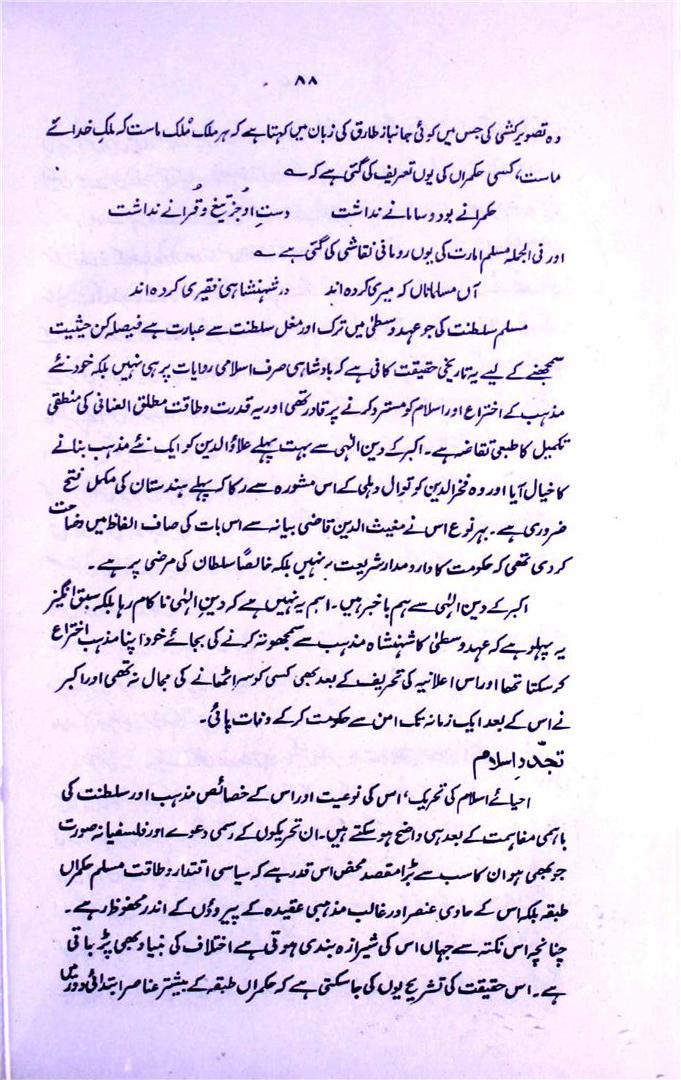 ۸۸
وہ تصویر کشی کی جس میں کوئی جانباز طارق کی زبان میں کہتا ہے کہ ہر ملک مُلک ماست کہ ملک خدائے
ماست، کسی حکمراں کی یوں تعریف کی گئی ہے کہ ؎
حکمرانے بود و سامانے نداشت دستِ او جُز تیغ و قرآنے نداشت
اور فی الجملہ مسلم امارت کی یوں رومانی نقاشی کی گئی ہے ؎
آں مسلماناں کہ میری کردہ اند در شہنشاہی فقیری کردہ اند
مسلم سلطنت کی جو عہد وسطیٰ میں ترک اور مغل سلطنت سے عبارت ہے فیصلہ کن حیثیت
سمجھنے کے لیے یہ تاریخی حقیقت کافی ہے کہ بادشاہی صرف اسلامی روایات پر ہی نہیں بلکہ خود نئے
مذہب کے اختراع اور اسلام کو مسترد کرنے پر قادر تھی اور یہ قدرت و طاقت مطلق العنانی کی منطقی
تکمیل کا طبعی تقاضہ ہے۔ اکبر کے دین الٰہی سے بہت پہلے علاؤالدین کو ایک نئے مذہب بنانے
کا خیال آیا اور وہ فخرالدین کوتوال دہلی کے اس مشورہ سے رکا کہ پہلے ہندستان کی مکمل فتح
ضروری ہے۔ بہر نوع اس نے مغیث الدین قاضی بیانہ سے اس بات کی صاف الفاظ میں وضاحت
کر دی تھی کہ حکومت کا دارومدار شریعت پر نہیں بلکہ خالصاً سلطان کی مرضی پر ہے۔
اکبر کے دین الٰہی سے ہم باخبر ہیں۔ اہم یہ نہیں ہے کہ دینِ الٰہی ناکام رہا بلکہ سبق انگیز
یہ پہلو ہے کہ عہد وسطیٰ کا شہنشاہ مذہب سے سمجھوتہ کرنے کی بجائے خود اپنا مذہب اختراع
کر سکتا تھا اور اس اعلانیہ کی تحریف کے بعد بھی کسی کو سر اٹھانے کی مجال نہ تھی اور اکبر
نے اس کے بعد ایک زمانہ تک امن سے حکومت کر کے وفات پائی۔
تجدّدِ اسلام
احیائے اسلام کی تحریک، اس کی نوعیت اور اس کے خصائص مذہب اور سلطنت کی
باہمی مفاہمت کے بعد ہی واضح ہو سکتے ہیں۔ ان تحریکوں کے رسمی دعوے اور فلسفیانہ صورت
جو بھی ہو ان کا سب سے بڑا مقصد محض اس قدر ہے کہ سیاسی اقتدار و طاقت مسلم حکمراں
طبقہ بلکہ اس کے حاوی عنصر اور غالب مذہبی عقیدہ کے پیروؤں کے اندر محفوظ رہے۔
چنانچہ اس نکتہ سے جہاں اس کی شیرازہ بندی ہوتی ہے اختلاف کی بنیاد بھی پڑ جاتی
ہے۔ اس حقیقت کی تشریح یوں کی جا سکتی ہے کہ حکمراں طبقہ کے بیشتر عناصر ابتدائی دور میں